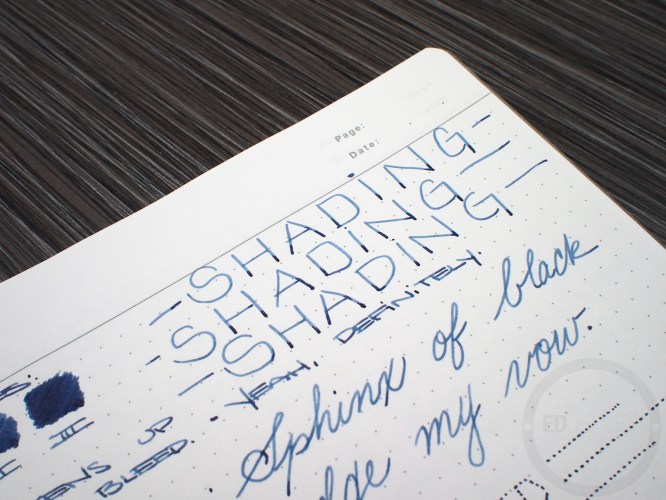 Page:
Date:
-SHADING-
-SHADING-
-SHADING-
• YEAH, DEFINITELY
Sphinx of black
my vow.
II III
UP
BLEED.
ED